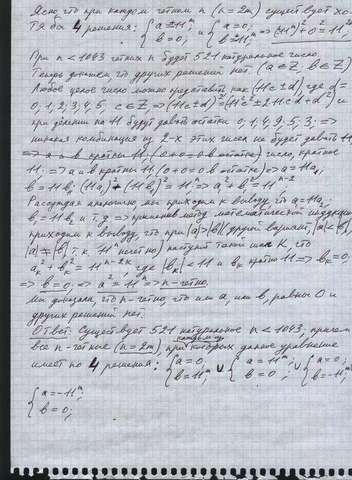 Ясно что при каждом чётном n (n=2m) существует хо-
тя бы 4 решения: { a=±11^m; b=0; и { a=0; b=±11^m; => (11^m)²+0²=11^2m
При n<1043 чётных n будет 521 натуральное число.
Теперь докажем что других решений нет. (a∈Z b∈Z)
Любое целое число можно представить как (11c±d), где d=
0,1,2,3,4,5, c∈Z => (11c±d)²=(11²c²±2·11cd+d²) и
при делении на 11 будут давать остатки 0,1,4,9,5,3; =>
никакая комбинация из 2-х этих чисел не будет давать 11
=> a и b кратны 11 (0+0=0 в остатке) число, кратное
11. => a и b кратны 11 (0+0=0 в остатке) => a=11a₁;
b=11b₁ (11a₁)²+(11b₁)²=11^n => a₁²+b₁²=11^n-2
Рассуждая аналогично, мы приходим к выводу, что a₁=11a₂,
b₁=11b₂ и т.д => применив метод математической индукции
приходим к выводу, что при |a|>|b| (другой вариант, |a|<|b|,
|a|≠|b| т.к 11 нечётно) наступит такой шаг K, что
a_k²+b_k²=11^n-2k, где |b_k|<11 и b_k кратно 11 => b_k=0;
=> b=0; => a²=11^n => n-чётно.
Мы доказали, что n-чётно, что или a, или b, равны 0 и
других решений нет.
Ответ: Существует 521 натуральное n<1043, причём
все n-чётные (n=2m), при которых данное уравнение
имеет по 4 решения: { a=0, b=11^m; ∪ { a=11^m; b=0; ∪ { a=0; b=-11^m;
{ a=-11^m; b=0;